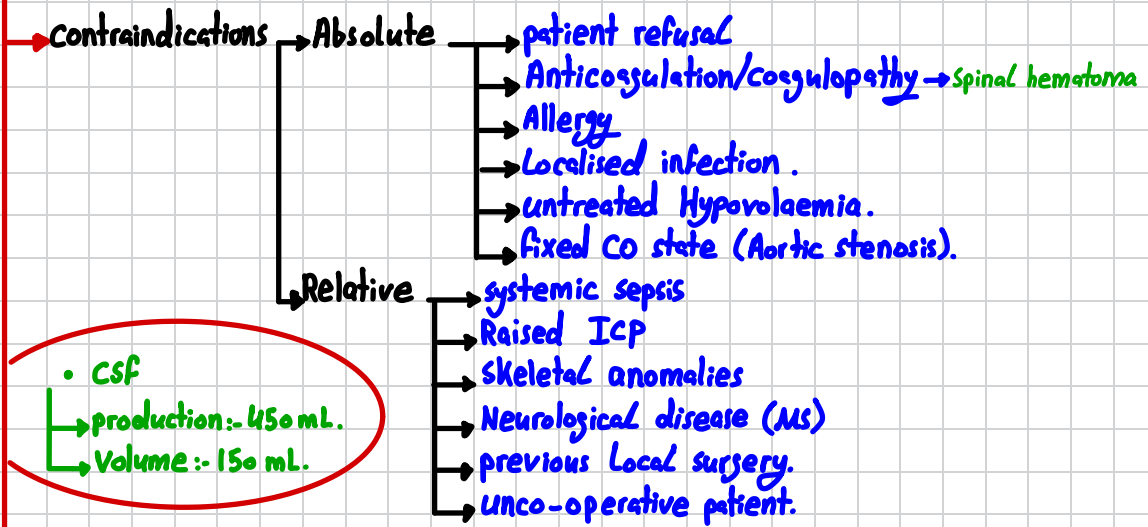 Contraindications → Absolute → patient refusal
→ Anticoagulation/coagulopathy → spinal hematoma
→ Allergy
→ Localised infection.
→ untreated Hypovolaemia.
→ fixed CO state (Aortic stenosis).
→ Relative → systemic sepsis
→ Raised ICP
→ skeletal anomalies
→ Neurological disease (MS)
→ previous Local surgery.
→ unco-operative patient.
• CSF
→ production:- 450 mL.
→ Volume:- 150 mL.